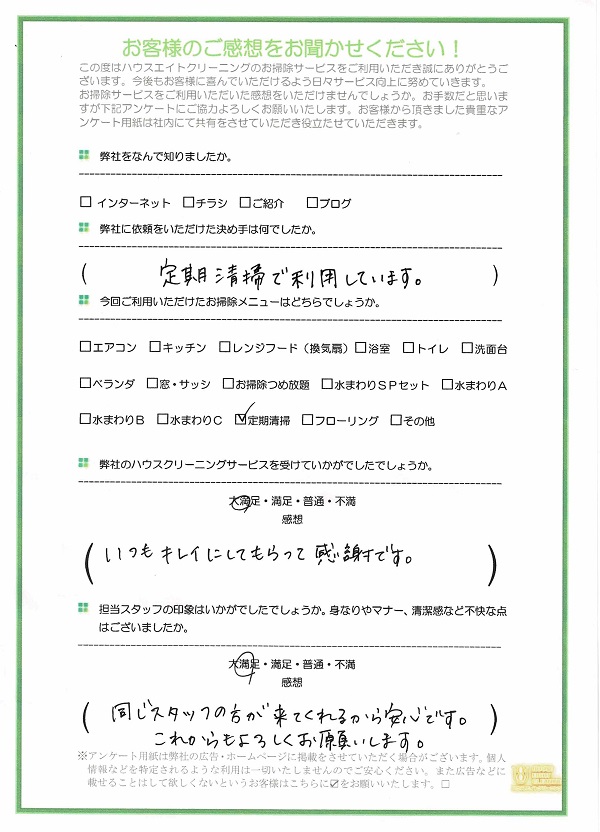 お客様のご感想をお聞かせください！
この度はハウスエイトクリーニングのお掃除サービスをご利用いただき誠にありがとうご
ざいます。今後もお客様に喜んでいただけるよう日々サービス向上に努めていきます。
お掃除サービスをご利用いただいた感想をいただけませんでしょうか。お手数だと思いま
すが下記アンケートにご協力よろしくお願いいたします。お客様から頂きました貴重なア
ンケート用紙は社内にて共有をさせていただき役立たせていただきます。
弊社をなんで知りましたか。
□ インターネット □チラシ □ご紹介 □ブログ
弊社に依頼をいただけた決め手は何でしたか。
( 定期清掃で利用しています。 )
今回ご利用いただけたお掃除メニューはどちらでしょうか。
□エアコン □キッチン □レンジフード（換気扇）□浴室 □トイレ □洗面台
□ベランダ □窓・サッシ □お掃除つめ放題 □水まわりＳＰセット □水まわりＡ
□水まわりＢ □水まわりＣ ☑定期清掃 □フローリング □その他
弊社のハウスクリーニングサービスを受けていかがでしたでしょうか。
大満足・満足・普通・不満
感想
( いつもキレイにしてもらって感謝です。 )
担当スタッフの印象はいかがでしたでしょうか。身なりやマナー、清潔感など不快な点
はございましたか。
大満足・満足・普通・不満
感想
( 同じスタッフの方が来てくれるから安心です。 )
これからもよろしくお願いします。
※アンケート用紙は弊社の広告・ホームページに掲載をさせていただく場合がございます。個人
情報などを特定されるような利用は一切いたしませんのでご安心ください。また広告などに
載せることはして欲しくないというお客様はこちらに☑をお願いいたします。□